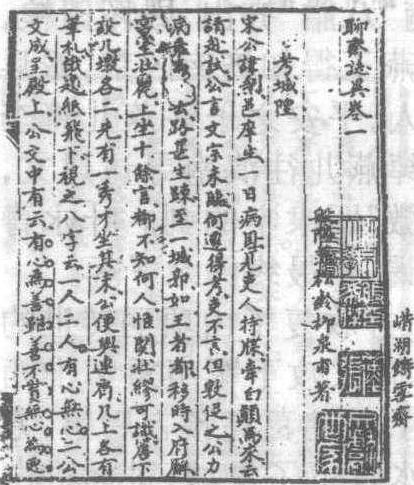 湖鑄雪齋
聊齋誌異卷一
般陽蒲松齡柳泉甫著
考城隍
宋公諱燾邑庠生一日病臥見吏人持牒牽白顛馬來云
請赴試公言文宗未臨何遽得考吏不言但敦促之公力
病乘馬去路甚生疎至一城郭如王者都移時入府廨
宮室壯麗上坐十餘官都不知何人惟關壯繆可識簷下
設几墩各二先有一秀才坐其末公便與連肩几上各有
筆札俄題紙飛下視之八字云一人二人有心無心二公
文成呈殿上公文中有云有心為善雖善不賞無心為惡